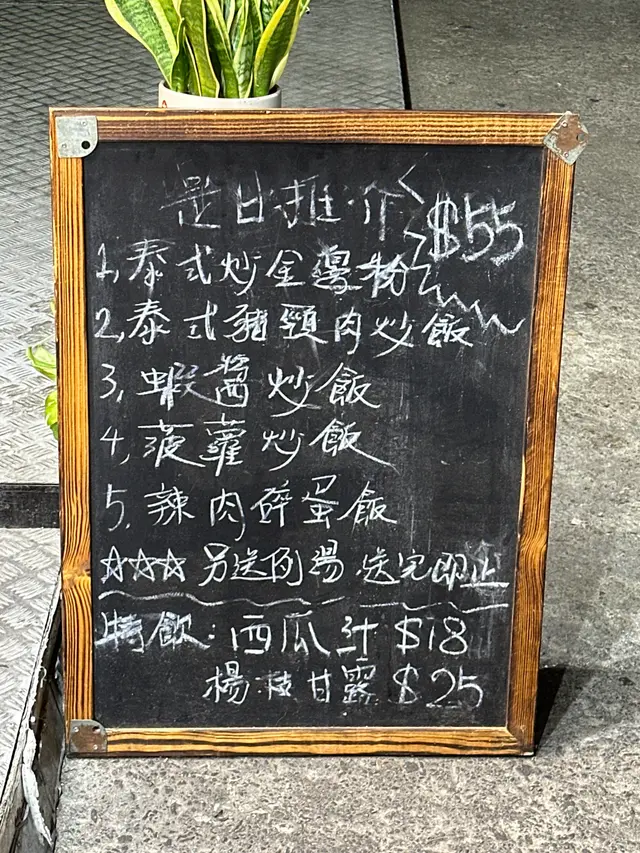 是日推介 $55
1, 泰式炒金邊粉
2, 泰式豬頸肉炒飯
3, 蝦醬炒飯
4, 菠蘿炒飯
5, 辣肉碎蛋飯
☆☆☆ 另送例湯 送完即止
特飲: 西瓜汁 $18
楊枝甘露 $25